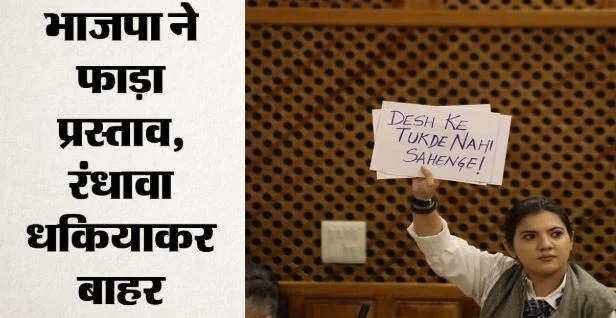 भाजपा ने
फाड़ा
प्रस्ताव,
रंधावा
धकियाकर
बाहर
DESH KE
TUKDE NAHI
SAHENGE!